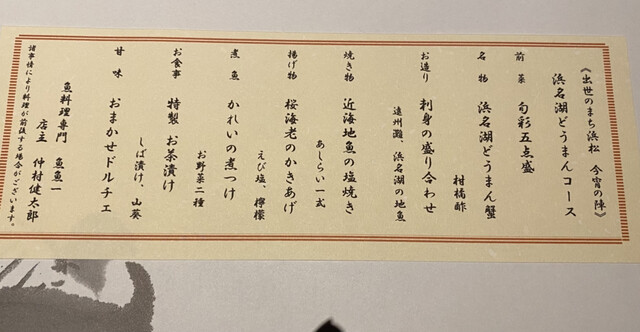 《出世のまち浜松　今宵の陣》
浜名湖どうまんコース
前菜　旬彩五点盛
名物　浜名湖どうまん蟹
柑橘酢
お造り　刺身の盛り合わせ
遠州灘、浜名湖の地魚
焼き物　近海地魚の塩焼き
あしらい一式
揚げ物　桜海老のかきあげ
えび塩、檸檬
煮魚　かれいの煮つけ
お野菜二種
お食事　特製　お茶漬け
しば漬け、山葵
甘味　おまかせドルチェ
魚料理専門　魚魚一
店主　仲村健太郎
諸事情により料理が前後する場合がございます。